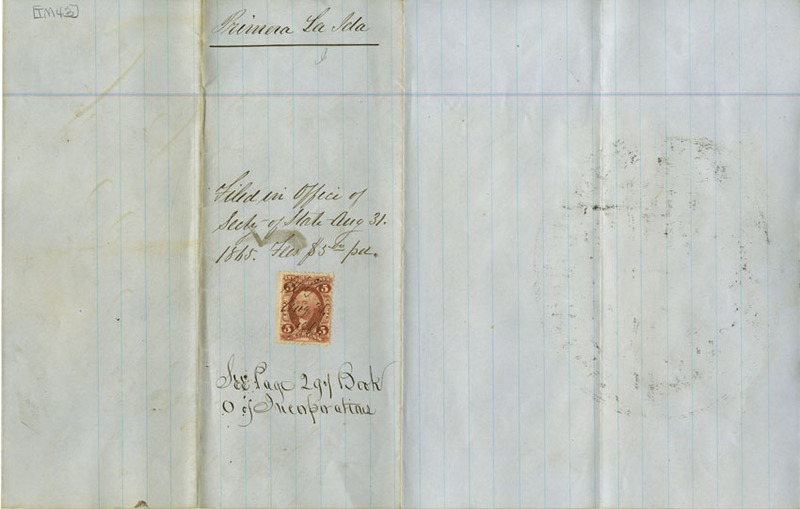 [IM43]
Primera La Ida
Filed in Office of
Secty of State Aug 31.
1865. Fees $5 00 pd.
5 5
5 5
See Page 291 Book
O of Incorporations